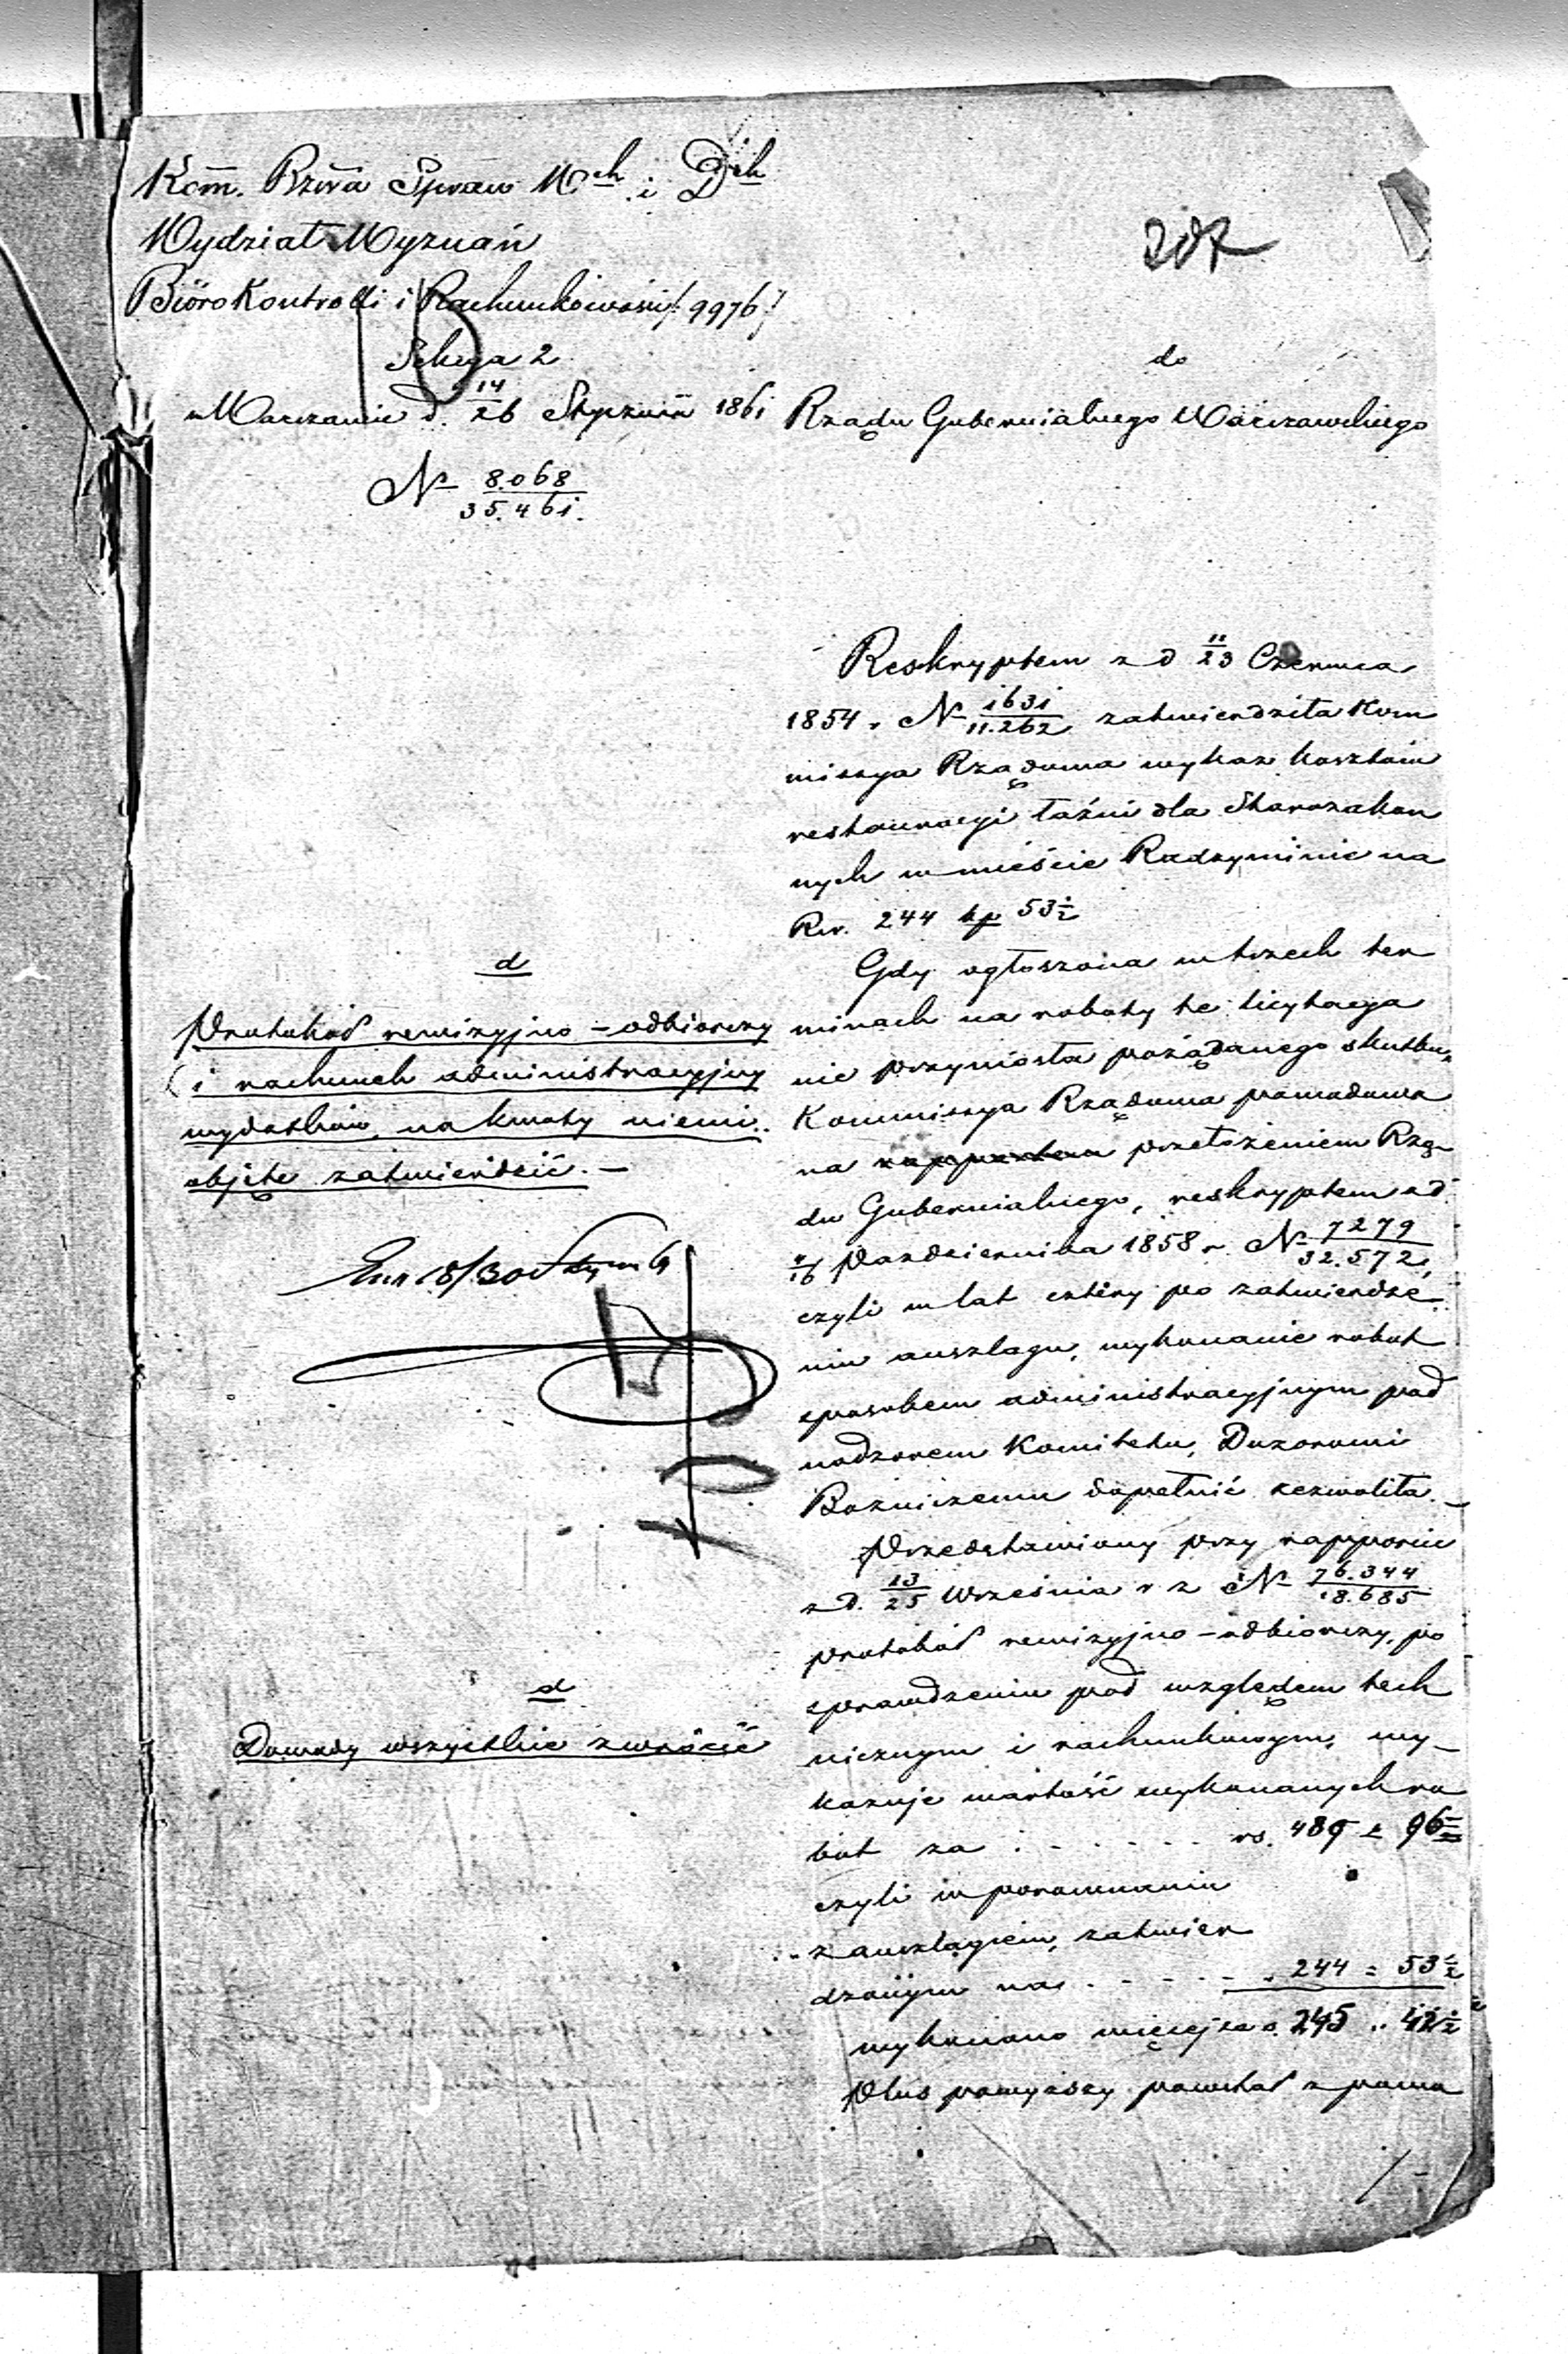 Kom. Rząwa Spraw Wch i Dch
Wydział Wyznań
Bióro Kontrolli i Rachunkowości [: 9976 :]
Sekcya 2
w Warszawie d. 14/26 Stycznia 1861
N 8.068/35.461.
207
do
Rządu Gubernialnego Warszawskiego
Reskryptem z d 11/23 Czerwca
1854 r. N 1631/11.262 zatwierdziła Kom
missya Rządowa wykaz kosztów
restauracyi łaźni dla Starozakon
nych w mieście Radzyminie na
Rsr. 244 kp 53½
Gdy ogłoszona w trzech ter
minach na roboty te licytacya
nie przyniosła pożądanego skutku,
Kommissya Rządowa powodowa
na rapportem przełożeniem Rzą-
du Gubernialnego, reskryptem z d
4/16 Pazdziernika 1858 r. N 7279/32.572,
czyli w lat cztery po zatwierdze-
niu anszlagu, wykonanie robot
sposobem administracyjnym pod
nadzorem Komitetu, Dozorowi
Bożniczemu dopełnić zezwoliła.—
Przedstawiony przy rapporcie
z d. 13/25 Września r z N 76.344/18.685
protokół rewizyjno-odbiorczy, po
sprawdzeniu pod względem tech
nicznym i rachunkowym, wy-
kazuje wartość wykonanych ro
bót za . - - - - - rs. 489 k 96
czyli w porownaniu
z anszlagiem, zatwier
dzonym na . - - - - - „ 244 = 53½
wykonano więcej za 245 .. 42½
Plus powyższy powstał z powo
d
Protokół rewizyjno-odbiorczy
i rachunek administracyjny
wydatków, na kwoty niemi
objęte zatwierdzić.—
18/30
d
Dowody wszystkie zwrócić